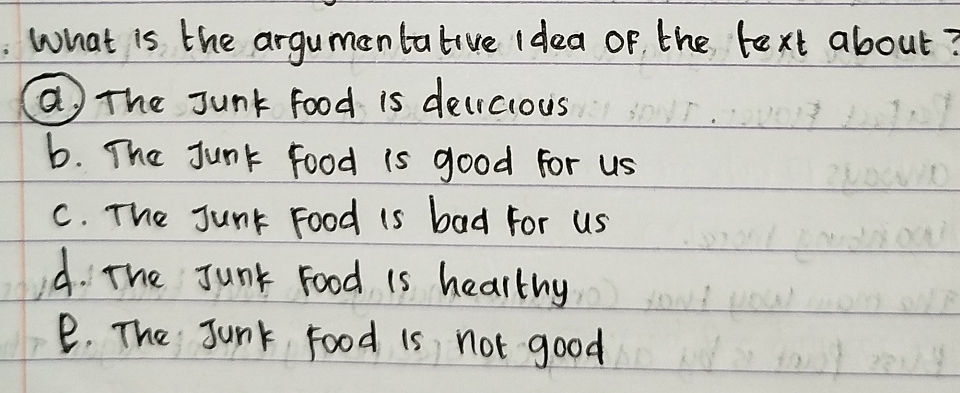 . What is the argumentative idea of the text about?
a. The Junk food is delicious
b. The Junk food is good for us
c. The Junk food is bad for us
d. The Junk food is healthy
e. The Junk food is not good